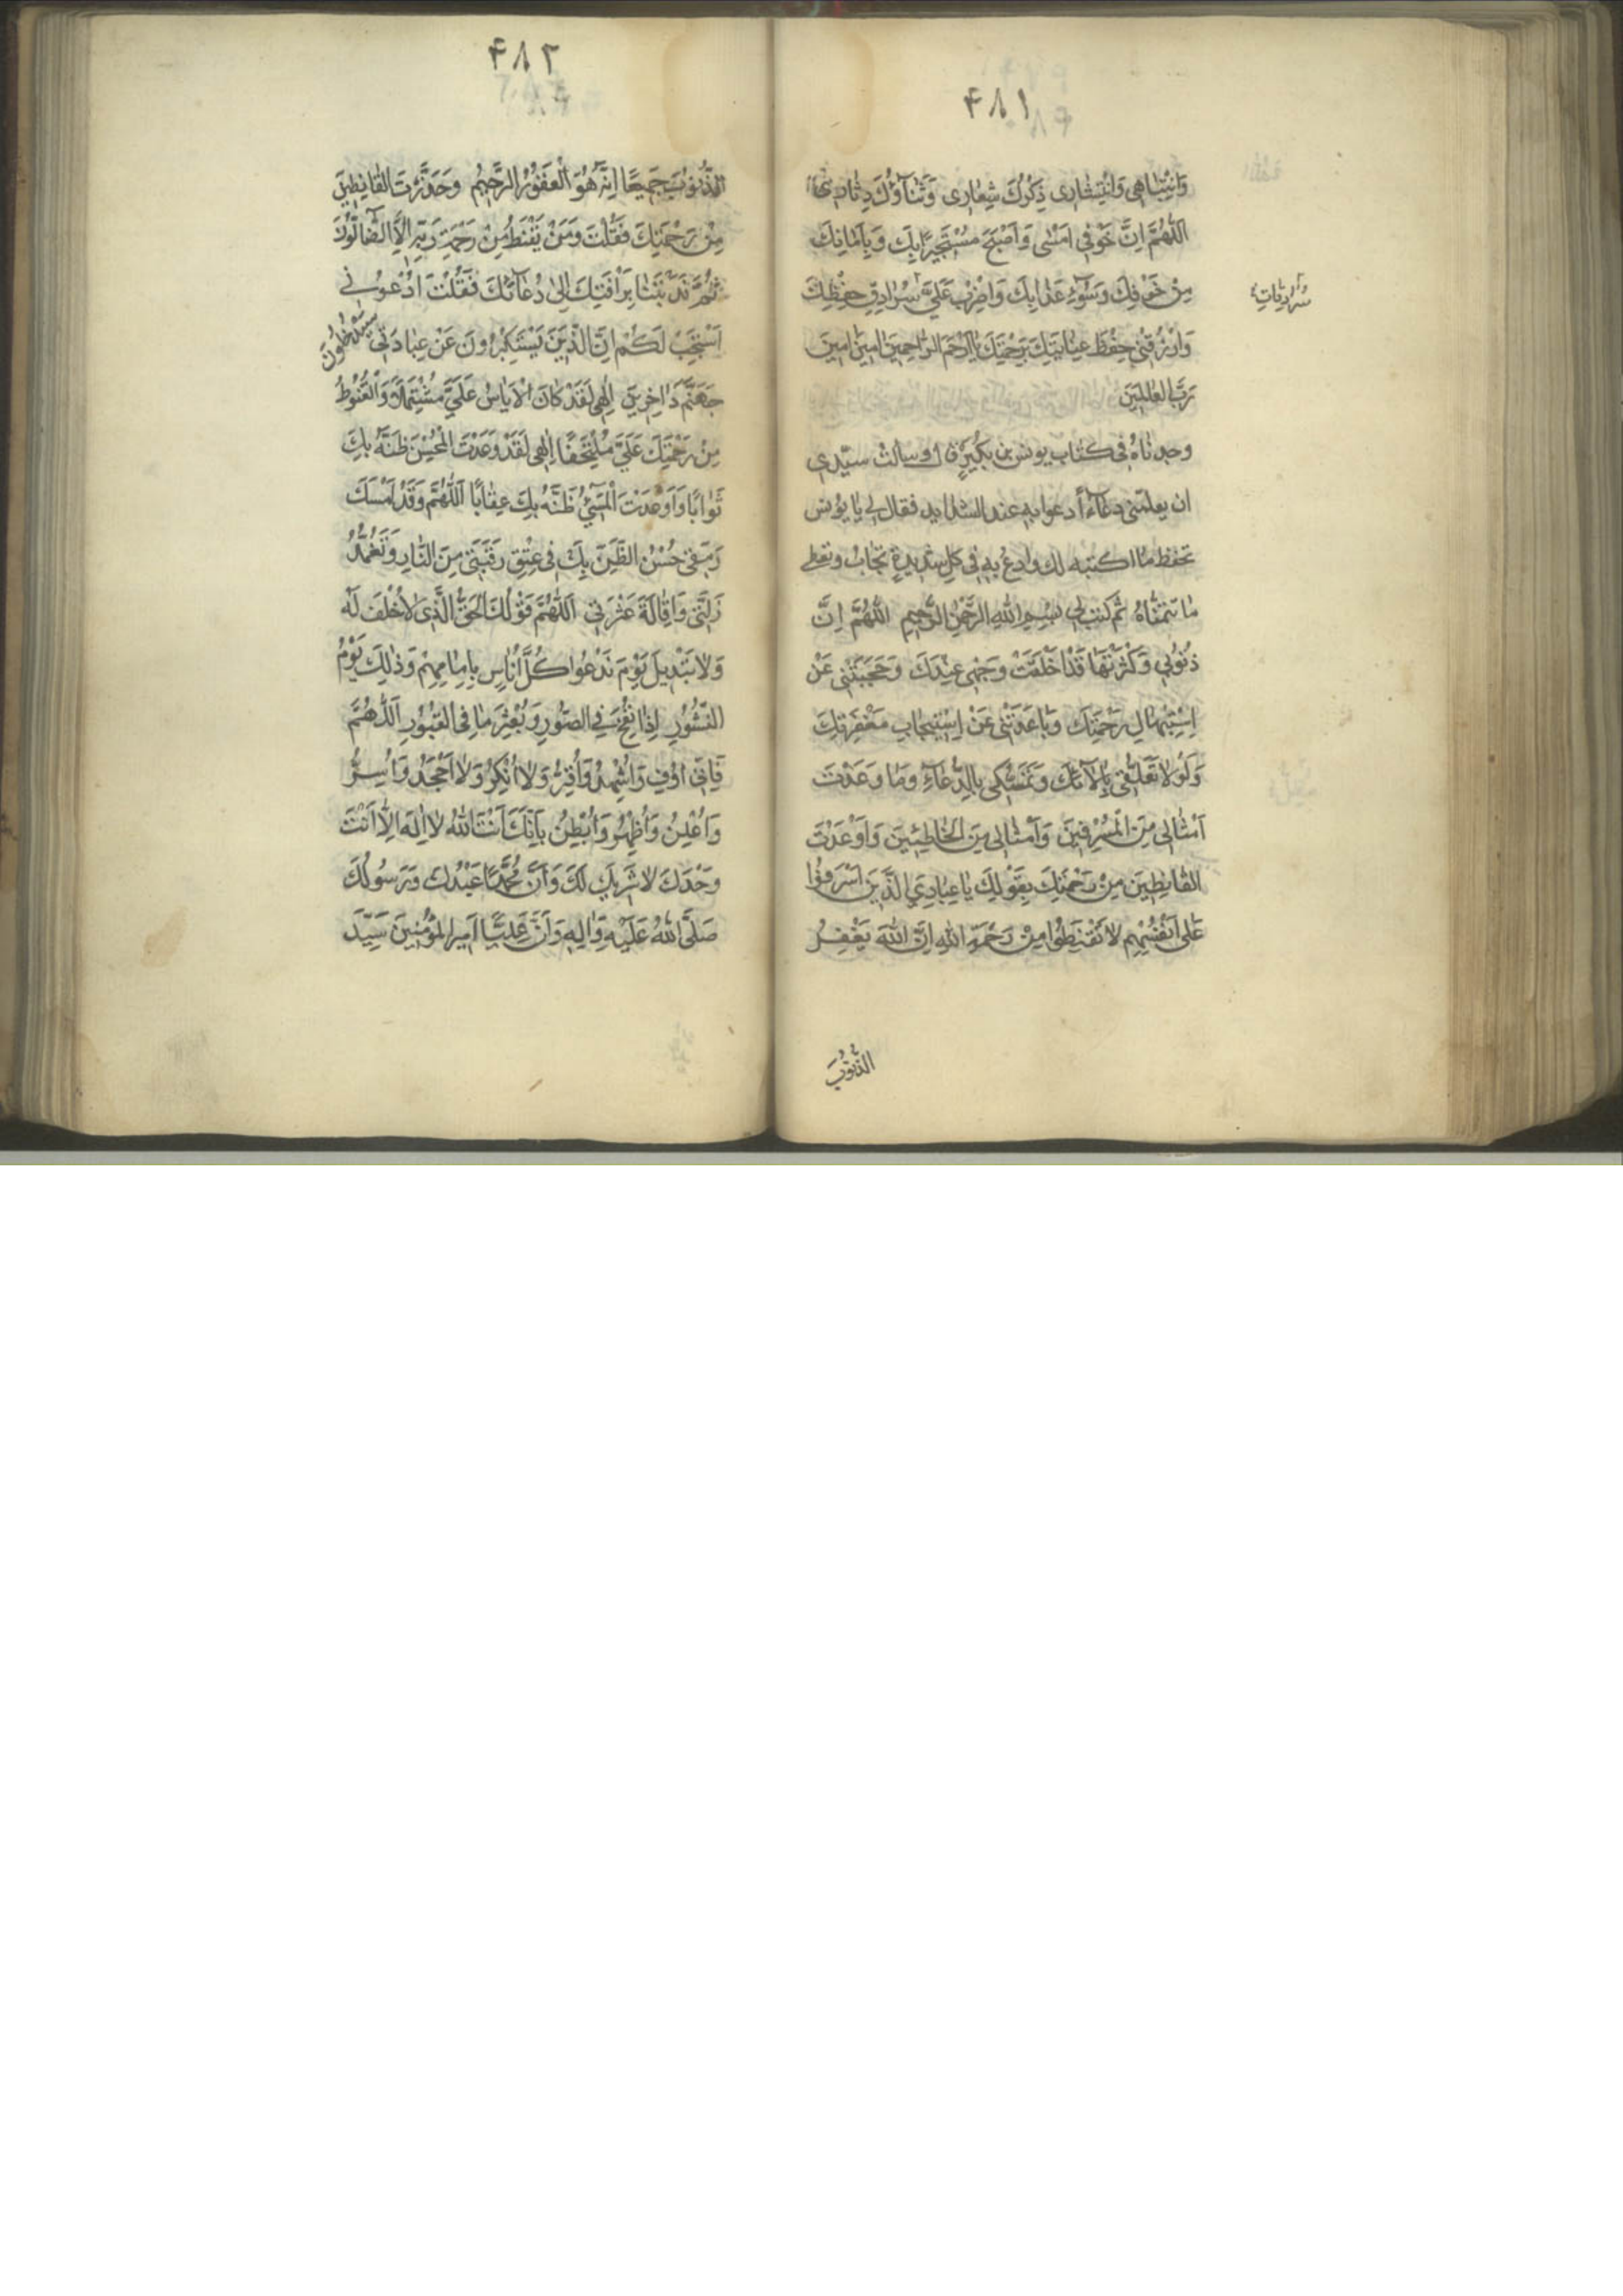 ۴۸۱
وَانْتِبٰاهِی وَانْتِشٰارِی ذِکْرُكَ شِعٰارِی وَثَنٰآؤُكَ دِثٰارِی
اَللّٰهُمَّ اِنَّ خَوْفِی اَمْسٰی وَاَصْبَحَ مُسْتَجِیرًا بِكَ وَبِاَمٰانِكَ
مِنْ خَوْفِكَ وَسُوٓءِ عَذٰابِكَ وَاضْرِبْ عَلَیَّ سُرٰادِقَ حِفْظِكَ
سُرٰادِقٰاتِ
وَارْزُقْنِی حِفْظَ عِنٰایَتِكَ بِرَحْمَتِكَ یٰا اَرْحَمَ الرّٰاحِمِینَ اٰمِینَ اٰمِینَ
رَبَّ الْعٰالَمِینَ
وجدناهُ فی کتاب یونس بن بکیرٍ قال وسالت سیّدی
ان یعلّمنی دعآءً ادعوا بهٖ عند الشداید فقال لی یا یونس
تحفظ ما اکتبه لك وادعُ بهٖ فی کل شدیدةٍ تجابُ وتعطی
ما تتمنّاهُ ثم کتب لی بِسْمِ اللهِ الرَّحْمٰنِ الرَّحِیمِ اَللّٰهُمَّ اِنَّ
ذُنُوبِی وَکَثْرَتَهٰا قَدْ اَخْلَقَتْ وَجْهِی عِنْدَكَ وَحَجَبَتْنِی عَنْ
اِسْتِیهٰالِ رَحْمَتِكَ وَبٰاعَدَتْنِی عَنْ اِسْتِیجٰابِ مَغْفِرَتِكَ
وَلَوْلٰا تَعَلُّقِی بِاٰلٰآئِكَ وَتَمَسُّکِی بِالدُّعٰآءِ وَمٰا وَعَدْتَ
اَمْثٰالِی مِنَ الْمُسْرِفِینَ وَاَمْثٰالِی مِنَ الْخٰاطِئِینَ وَاَوْعَدْتَ
الْقٰانِطِینَ مِنْ رَحْمَتِكَ بِقَوْلِكَ یٰا عِبٰادِیَ الَّذِینَ اَسْرَفُوا
عَلٰی اَنْفُسِهِمْ لٰا تَقْنَطُوا مِنْ رَحْمَةِ اللهِ اِنَّ اللهَ یَغْفِرُ
الذُّنُوبَ
۴۸۲
الذُّنُوبَ جَمِیعًا اِنَّهُ هُوَ الْغَفُورُ الرَّحِیمُ وَحَذَّرْتَ الْقٰانِطِینَ
مِنْ رَحْمَتِكَ فَقُلْتَ وَمَنْ یَقْنَطُ مِنْ رَحْمَةِ رَبِّهٖ اِلَّا الضّٰآلُّونَ
ثُمَّ نَدَبْتَنٰا بِرَاْفَتِكَ اِلٰی دُعٰآئِكَ فَقُلْتَ ادْعُونِی
اَسْتَجِبْ لَکُمْ اِنَّ الَّذِینَ یَسْتَکْبِرُونَ عَنْ عِبٰادَتِی سَیَدْخُلُونَ
جَهَنَّمَ دٰاخِرِینَ اِلٰهِی لَقَدْ کٰانَ الْاَیٰاسُ عَلَیَّ مُشْتَمِلًا وَالْقُنُوطُ
مِنْ رَحْمَتِكَ عَلَیَّ مُلْتَحِفًا اِلٰهِی لَقَدْ وَعَدْتَ الْمُحْسِنَ ظَنَّهُ بِكَ
ثَوٰابًا وَاَوْعَدْتَ الْمُسِیٓءَ ظَنَّهُ بِكَ عِقٰابًا اَللّٰهُمَّ وَقَدْ اَمْسَكَ
رَمَقِی حُسْنُ الظَّنِّ بِكَ فِی عِتْقِ رَقَبَتِی مِنَ النّٰارِ وَتَغَمُّدُ
زَلَّتِی وَاِقٰالَةَ عَثْرَتِی اَللّٰهُمَّ قَوْلُكَ الْحَقُّ الَّذِی لٰا خُلْفَ لَهُ
وَلٰا تَبْدِیلَ یَوْمَ نَدْعُوا کُلَّ اُنٰاسٍ بِاِمٰامِهِمْ وَذٰلِكَ یَوْمُ
النُّشُورِ اِذٰا نُفِخَ فِی الصُّورِ وَبُعْثِرَ مٰا فِی الْقُبُورِ اَللّٰهُمَّ
فَاِنِّی اُوفِی وَاُشْهِدُ وَاُقِرُّ وَلٰا اُنْکِرُ وَلٰا اَجْحَدُ وَاُسِرُّ
وَاُعْلِنُ وَاُظْهِرُ وَاُبْطِنُ بِاَنَّكَ اَنْتَ اللهُ لٰا اِلٰهَ اِلّٰا اَنْتَ
وَحْدَكَ لٰا شَرِیكَ لَكَ وَاَنَّ مُحَمَّدًا عَبْدُكَ وَرَسُولُكَ
صَلَّی اللهُ عَلَیْهِ وَاٰلِهٖ وَاَنَّ عَلِیًّا اَمِیرَ الْمُؤْمِنِینَ سَیِّدَ